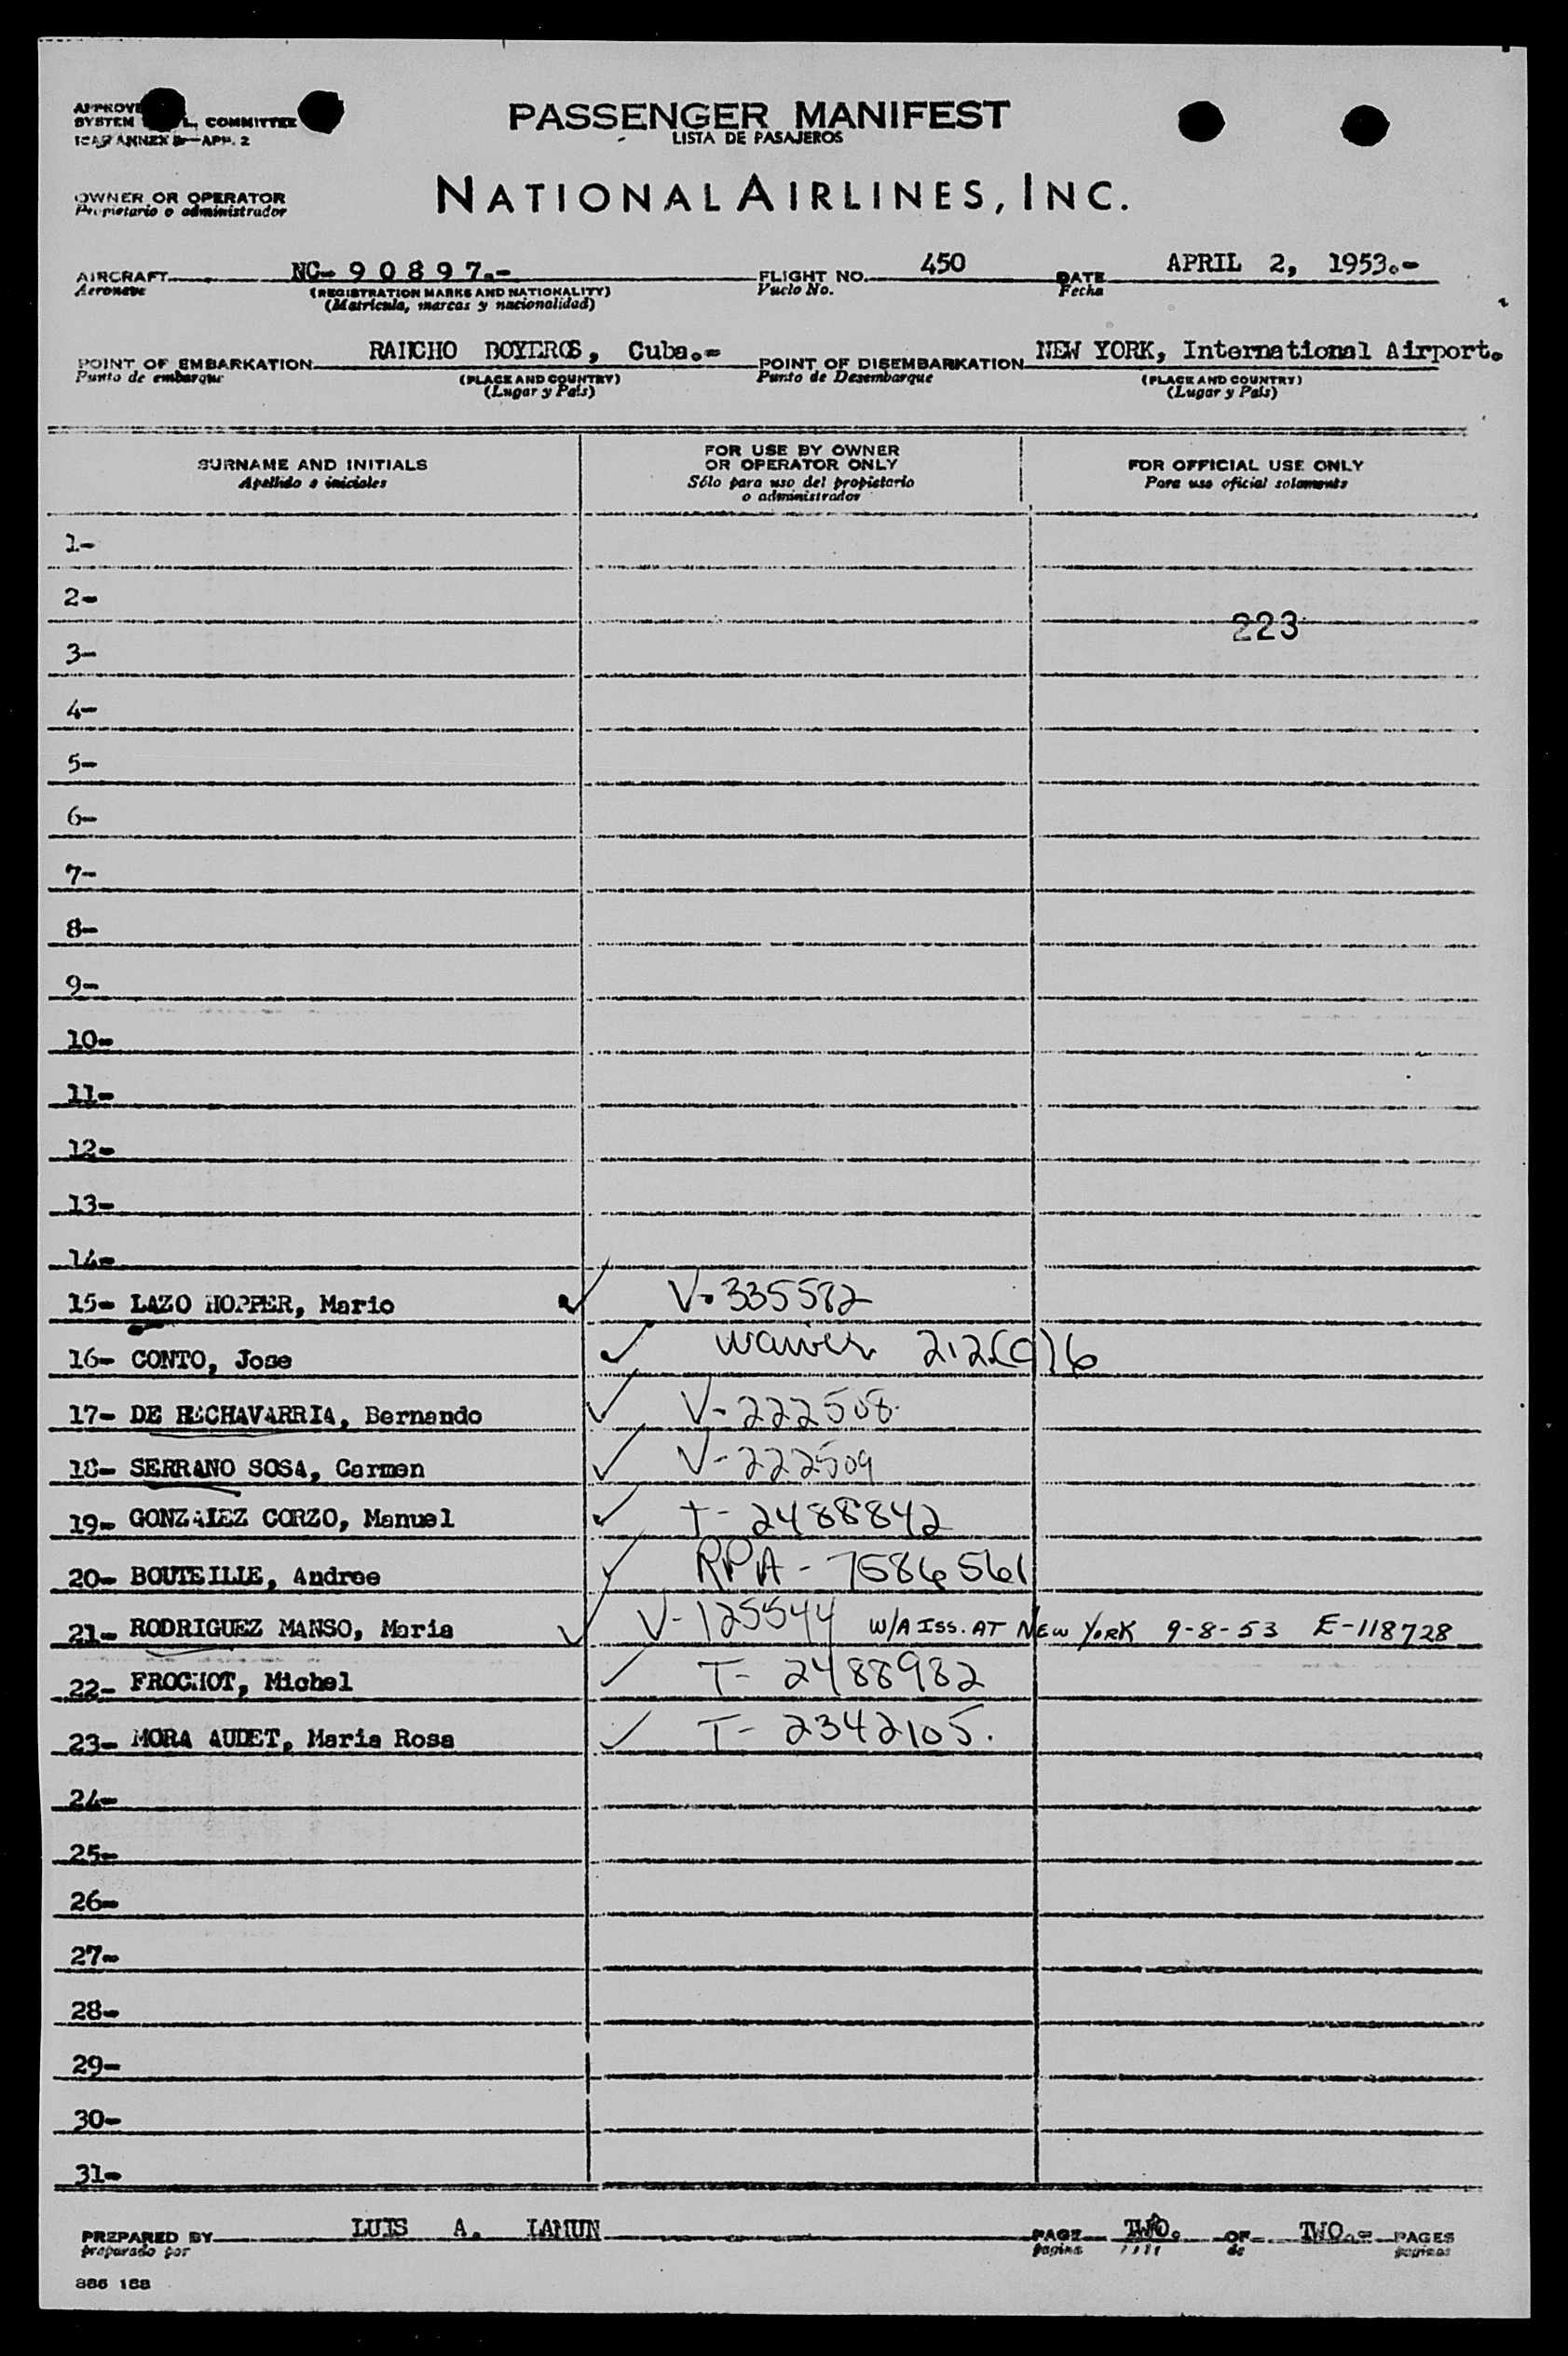 PASSENGER MANIFEST
LISTA DE PASAJEROS
SYSTEM COMMITTEE
ANNEX APP. 2
OWNER OR OPERATOR
Propietario o administrador
NATIONAL AIRLINES, INC.
AIRCRAFT NC- 9 0 8 9 7.- FLIGHT NO. 450 DATE APRIL 2, 1953.-
Aeronave (REGISTRATION MARKS AND NATIONALITY) Vuelo No. Fecha
(Matrícula, marcas y nacionalidad)
POINT OF EMBARKATION RANCHO BOYEROS, Cuba.- POINT OF DISEMBARKATION NEW YORK, International Airport.
Punto de embarque (PLACE AND COUNTRY) Punto de Desembarque (PLACE AND COUNTRY)
(Lugar y País) (Lugar y País)
SURNAME AND INITIALS FOR USE BY OWNER OR OPERATOR ONLY FOR OFFICIAL USE ONLY
Apellido e iniciales Sólo para uso del propietario o administrador Para uso oficial solamente
1-
2-
223
3-
4-
5-
6-
7-
8-
9-
10-
11-
12-
13-
14-
15- LAZO HOPPER, Mario V-335582
16- CONTO, Jose waiver 212(d)6
17- DE HECHAVARRIA, Bernando V-222508
18- SERRANO SOSA, Carmen V-222509
19- GONZALEZ CORZO, Manuel T-2488842
20- BOUTEILLE, Andree RPA-7586561
21- RODRIGUEZ MANSO, Maria V-125544 W/A ISS. AT NEW YORK 9-8-53 E-118728
22- FROCHOT, Michel T-2488982
23- MORA AUDET, Maria Rosa T-2342105.
24-
25-
26-
27-
28-
29-
30-
31-
PREPARED BY LUIS A. LAMUN PAGE TWO. OF TWO.= PAGES
preparado por pagina de paginas
886 188